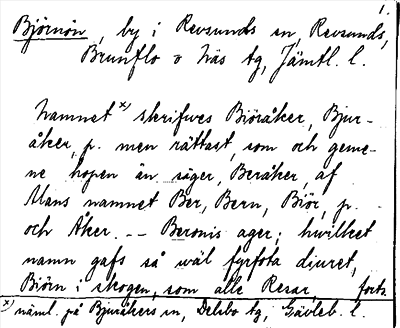 1.
Björnön, by i Revsunds sn, Revsunds,
Brunflo o Näs tg, Jämtl. l.
Namnet x) skrifwes Biöråker, Bjur-
åker, p. men rättast, som och geme-
ne hopen än säger, Beråker, af
Mans namnet Ber, Bern, Biör, p.
och Åker. -- Beronis ager; hwilket
namn gafs så wäl fyrfota diuret,
Biörn i skogen, som alle Resar, forts.
x) näml. på Bjuråkers sn, Delsbo tg, Gävleb. l.